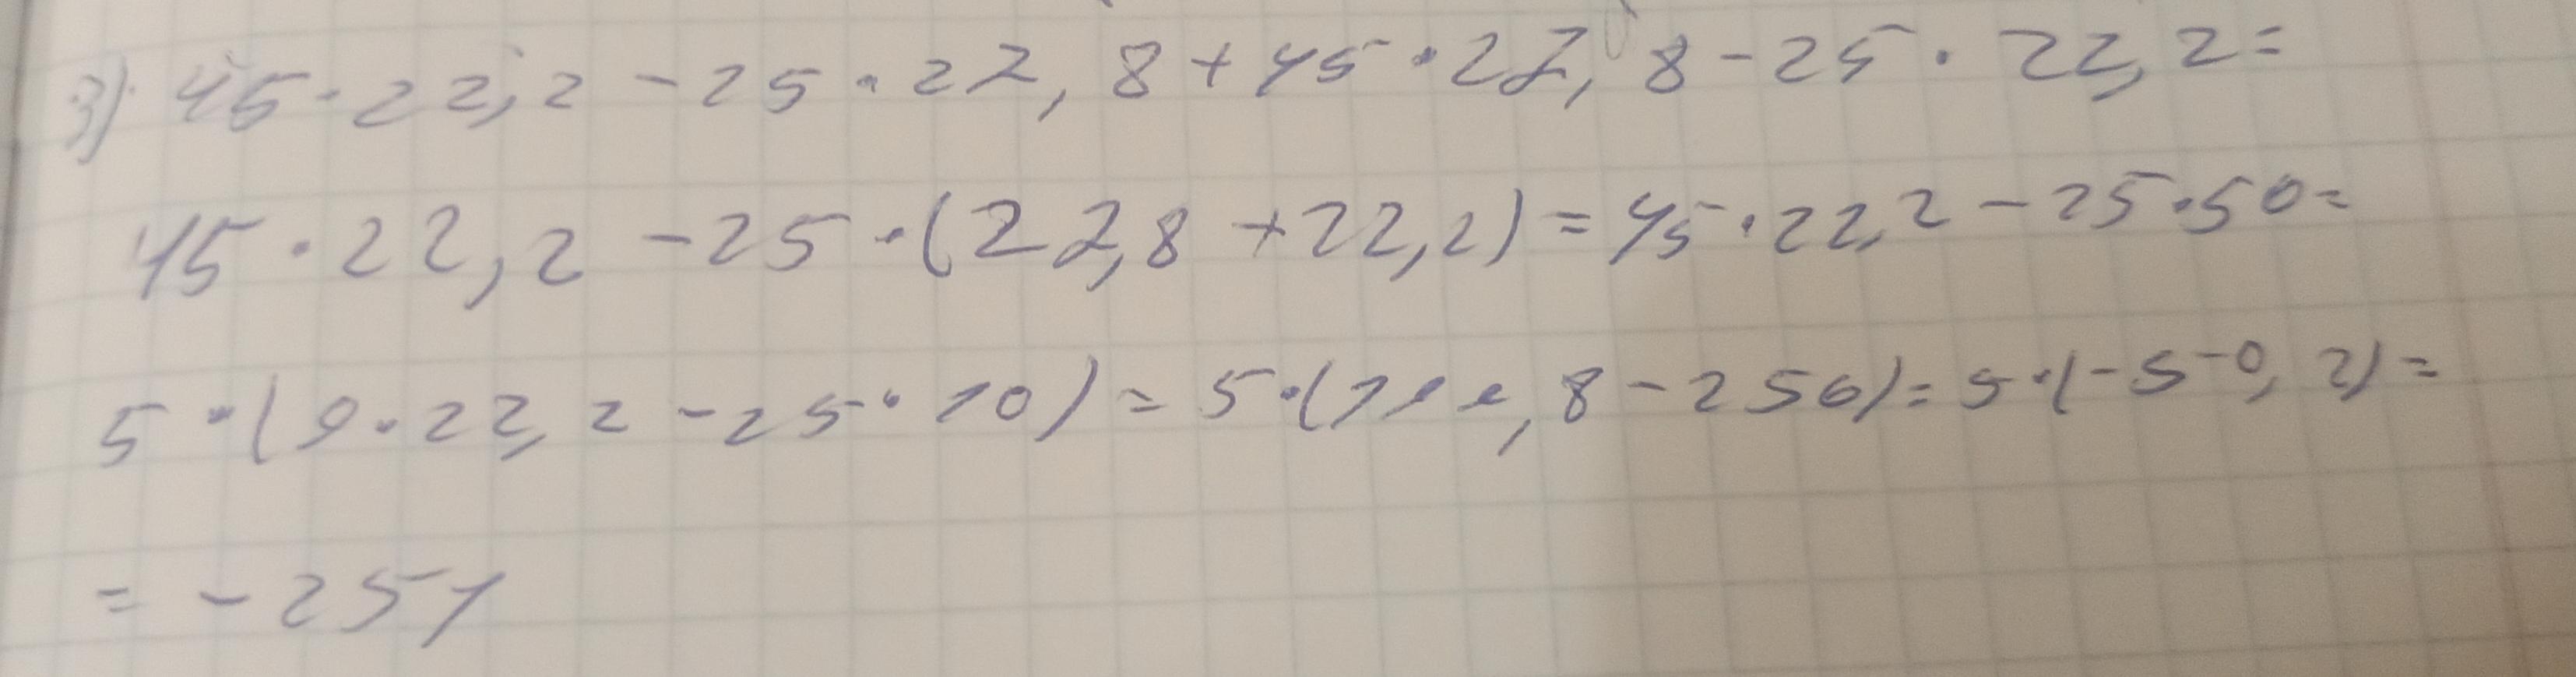 3) 45·22,2-25·27,8+45·27,8-25·22,2=
45·22,2-25·(27,8+22,2)=45·22,2-25·50=
5·(9·22,2-25·10)=5·(199,8-250)=5·(-50,2)=
=-251